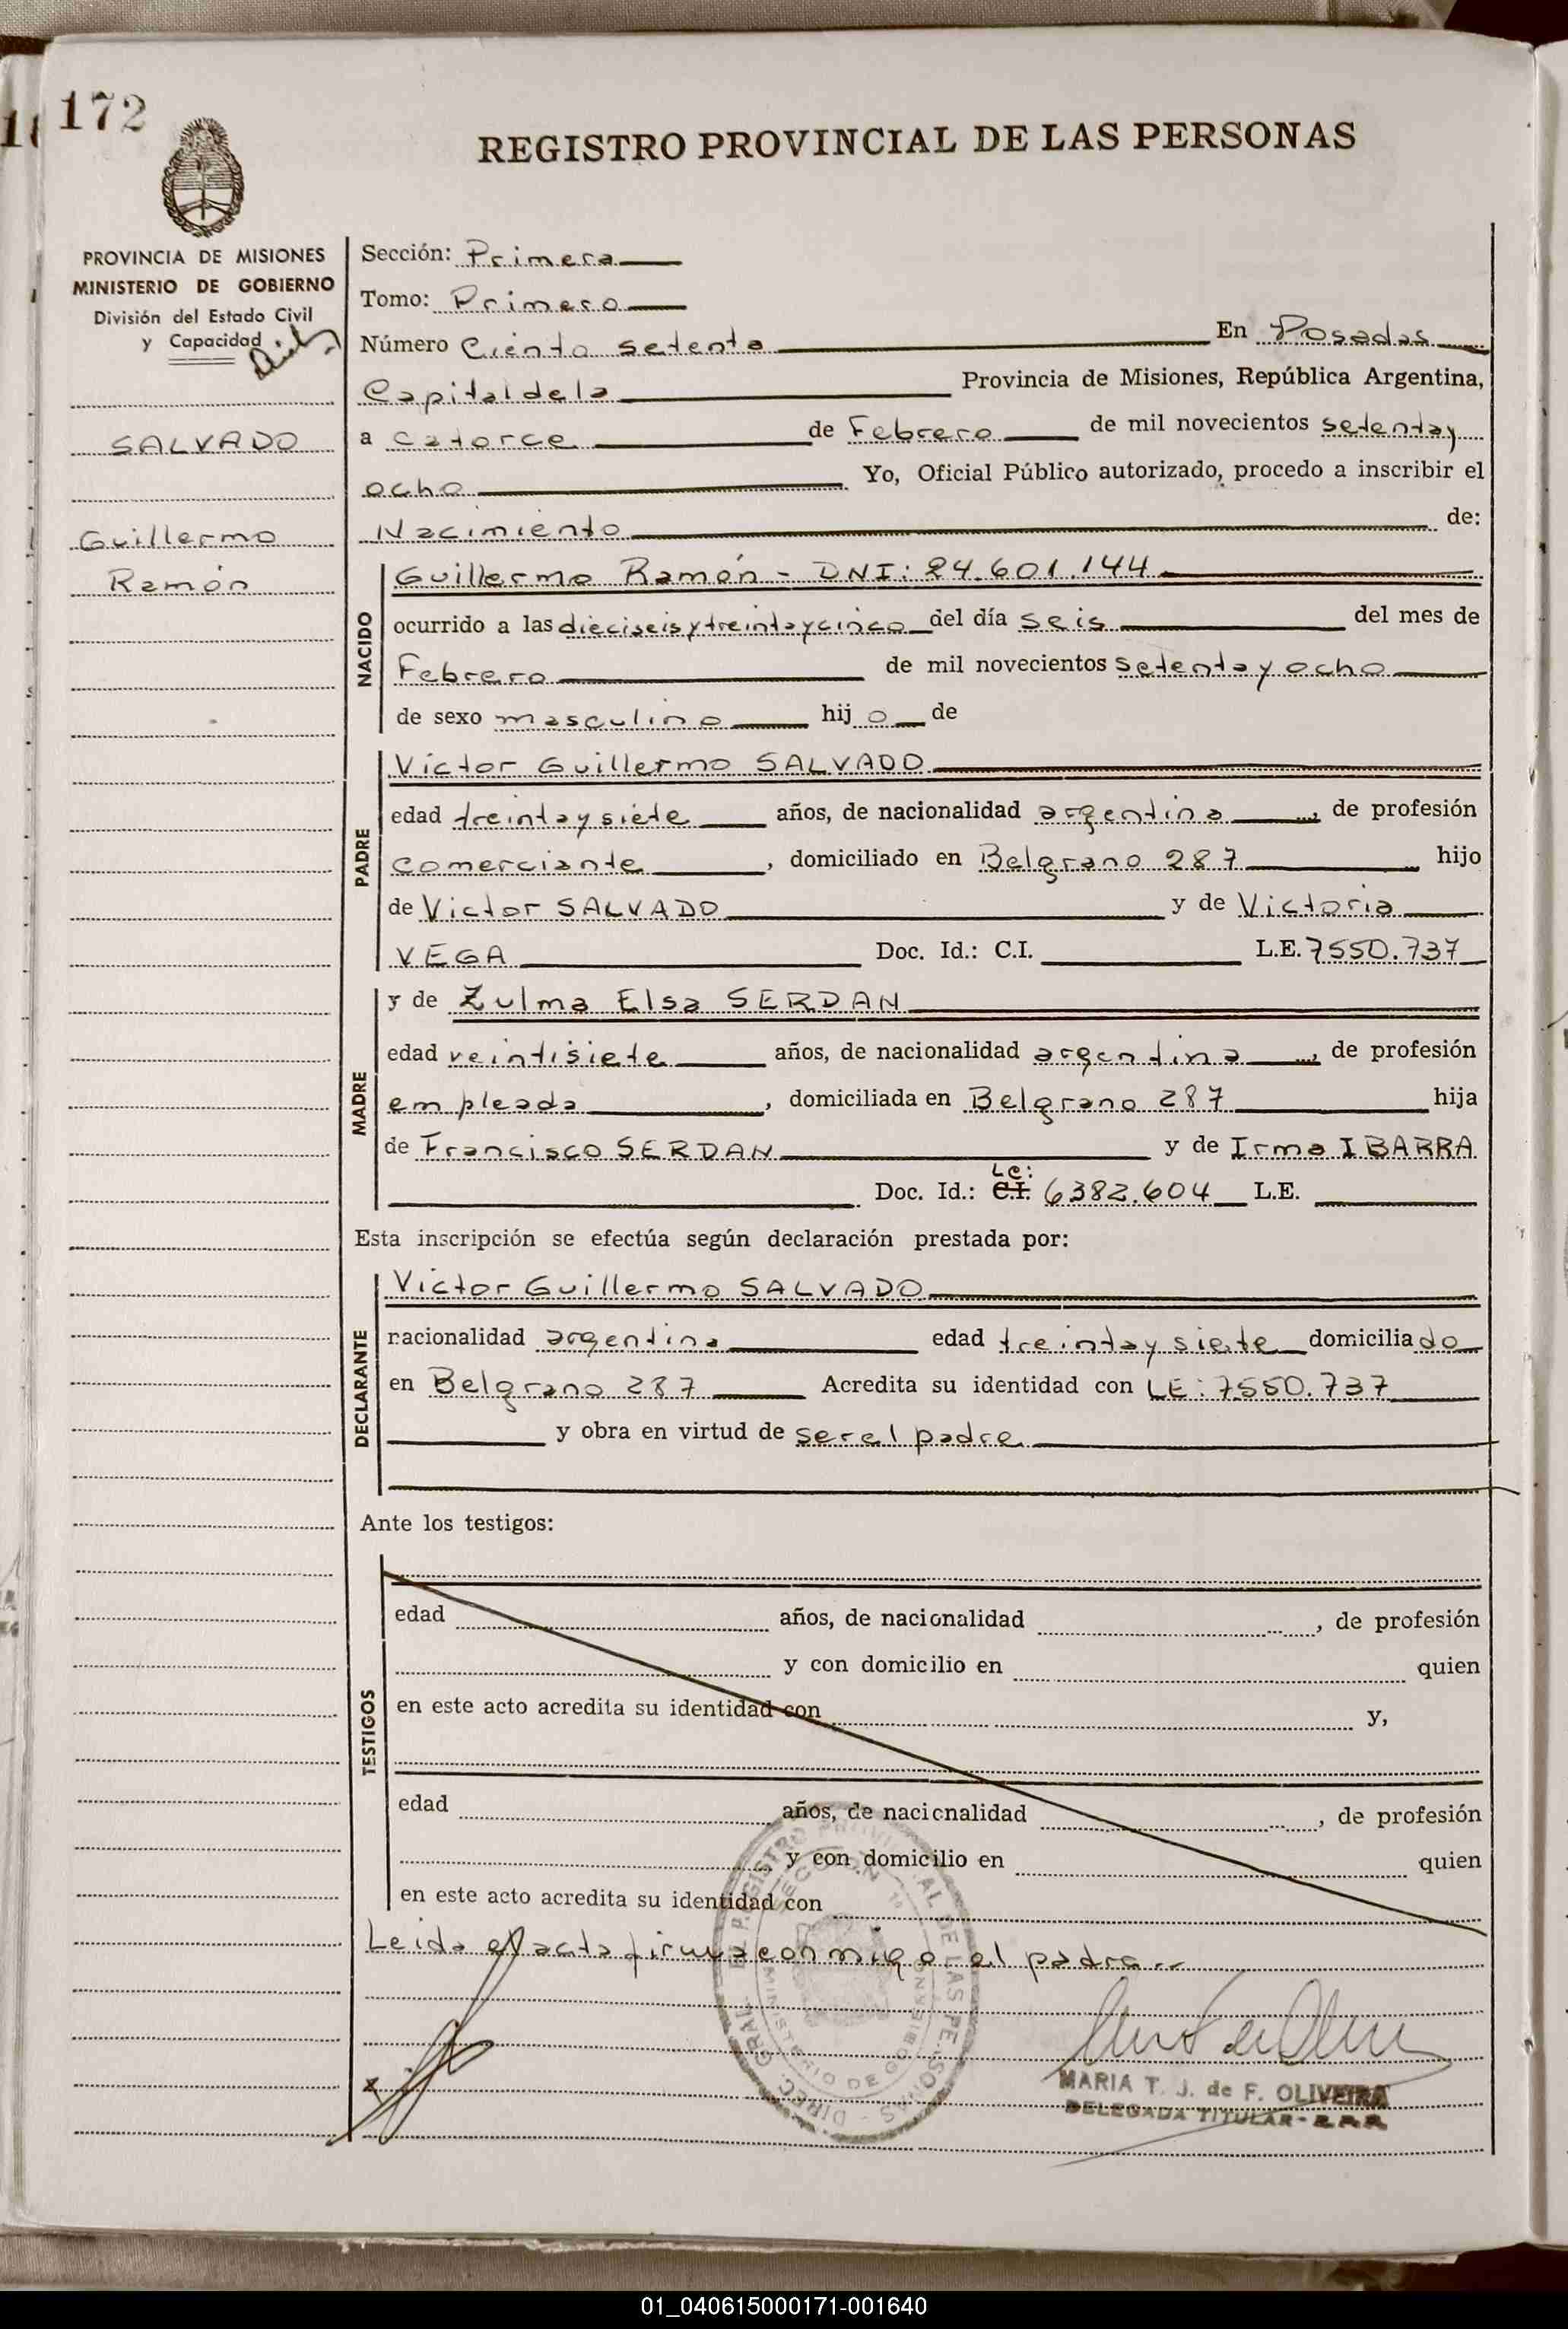 172
REGISTRO PROVINCIAL DE LAS PERSONAS
PROVINCIA DE MISIONES
MINISTERIO DE GOBIERNO
División del Estado Civil
y Capacidad
SALVADO
Guillermo
Ramón
Sección: Primera
Tomo: Primero
Número Ciento setenta En Posadas
Capital de la Provincia de Misiones, República Argentina,
a catorce de Febrero de mil novecientos setenta y
ocho Yo, Oficial Público autorizado, procedo a inscribir el
Nacimiento de:
NACIDO
Guillermo Ramón - DNI: 24.601.144
ocurrido a las dieciseis y treinta y cinco del día seis del mes de
Febrero de mil novecientos setenta y ocho
de sexo masculino hijo de
PADRE
Victor Guillermo SALVADO
edad treinta y siete años, de nacionalidad argentina, de profesión
comerciante, domiciliado en Belgrano 287 hijo
de Victor SALVADO y de Victoria
VEGA Doc. Id.: C.I. L.E. 7550.737
MADRE
y de Zulma Elsa SERDAN
edad veintisiete años, de nacionalidad argentina, de profesión
empleada, domiciliada en Belgrano 287 hija
de Francisco SERDAN y de Irma IBARRA
Doc. Id.: C.I. LC: 6382.604 L.E.
Esta inscripción se efectúa según declaración prestada por:
DECLARANTE
Victor Guillermo SALVADO
nacionalidad argentina edad treinta y siete domiciliado
en Belgrano 287 Acredita su identidad con LE: 7550.737
y obra en virtud de ser el padre
Ante los testigos:
TESTIGOS
edad años, de nacionalidad , de profesión
y con domicilio en quien
en este acto acredita su identidad con y,
edad años, de nacionalidad , de profesión
y con domicilio en quien
en este acto acredita su identidad con
Leida el acta firma conmigo el padre
DIREC. GRAL. DEL REGISTRO PROVINCIAL DE LAS PERSONAS
SECCION 1a
MINISTERIO DE GOBIERNO
MARIA T. J. de F. OLIVEIRA
DELEGADA TITULAR - R.P.P.
01_040615000171-001640